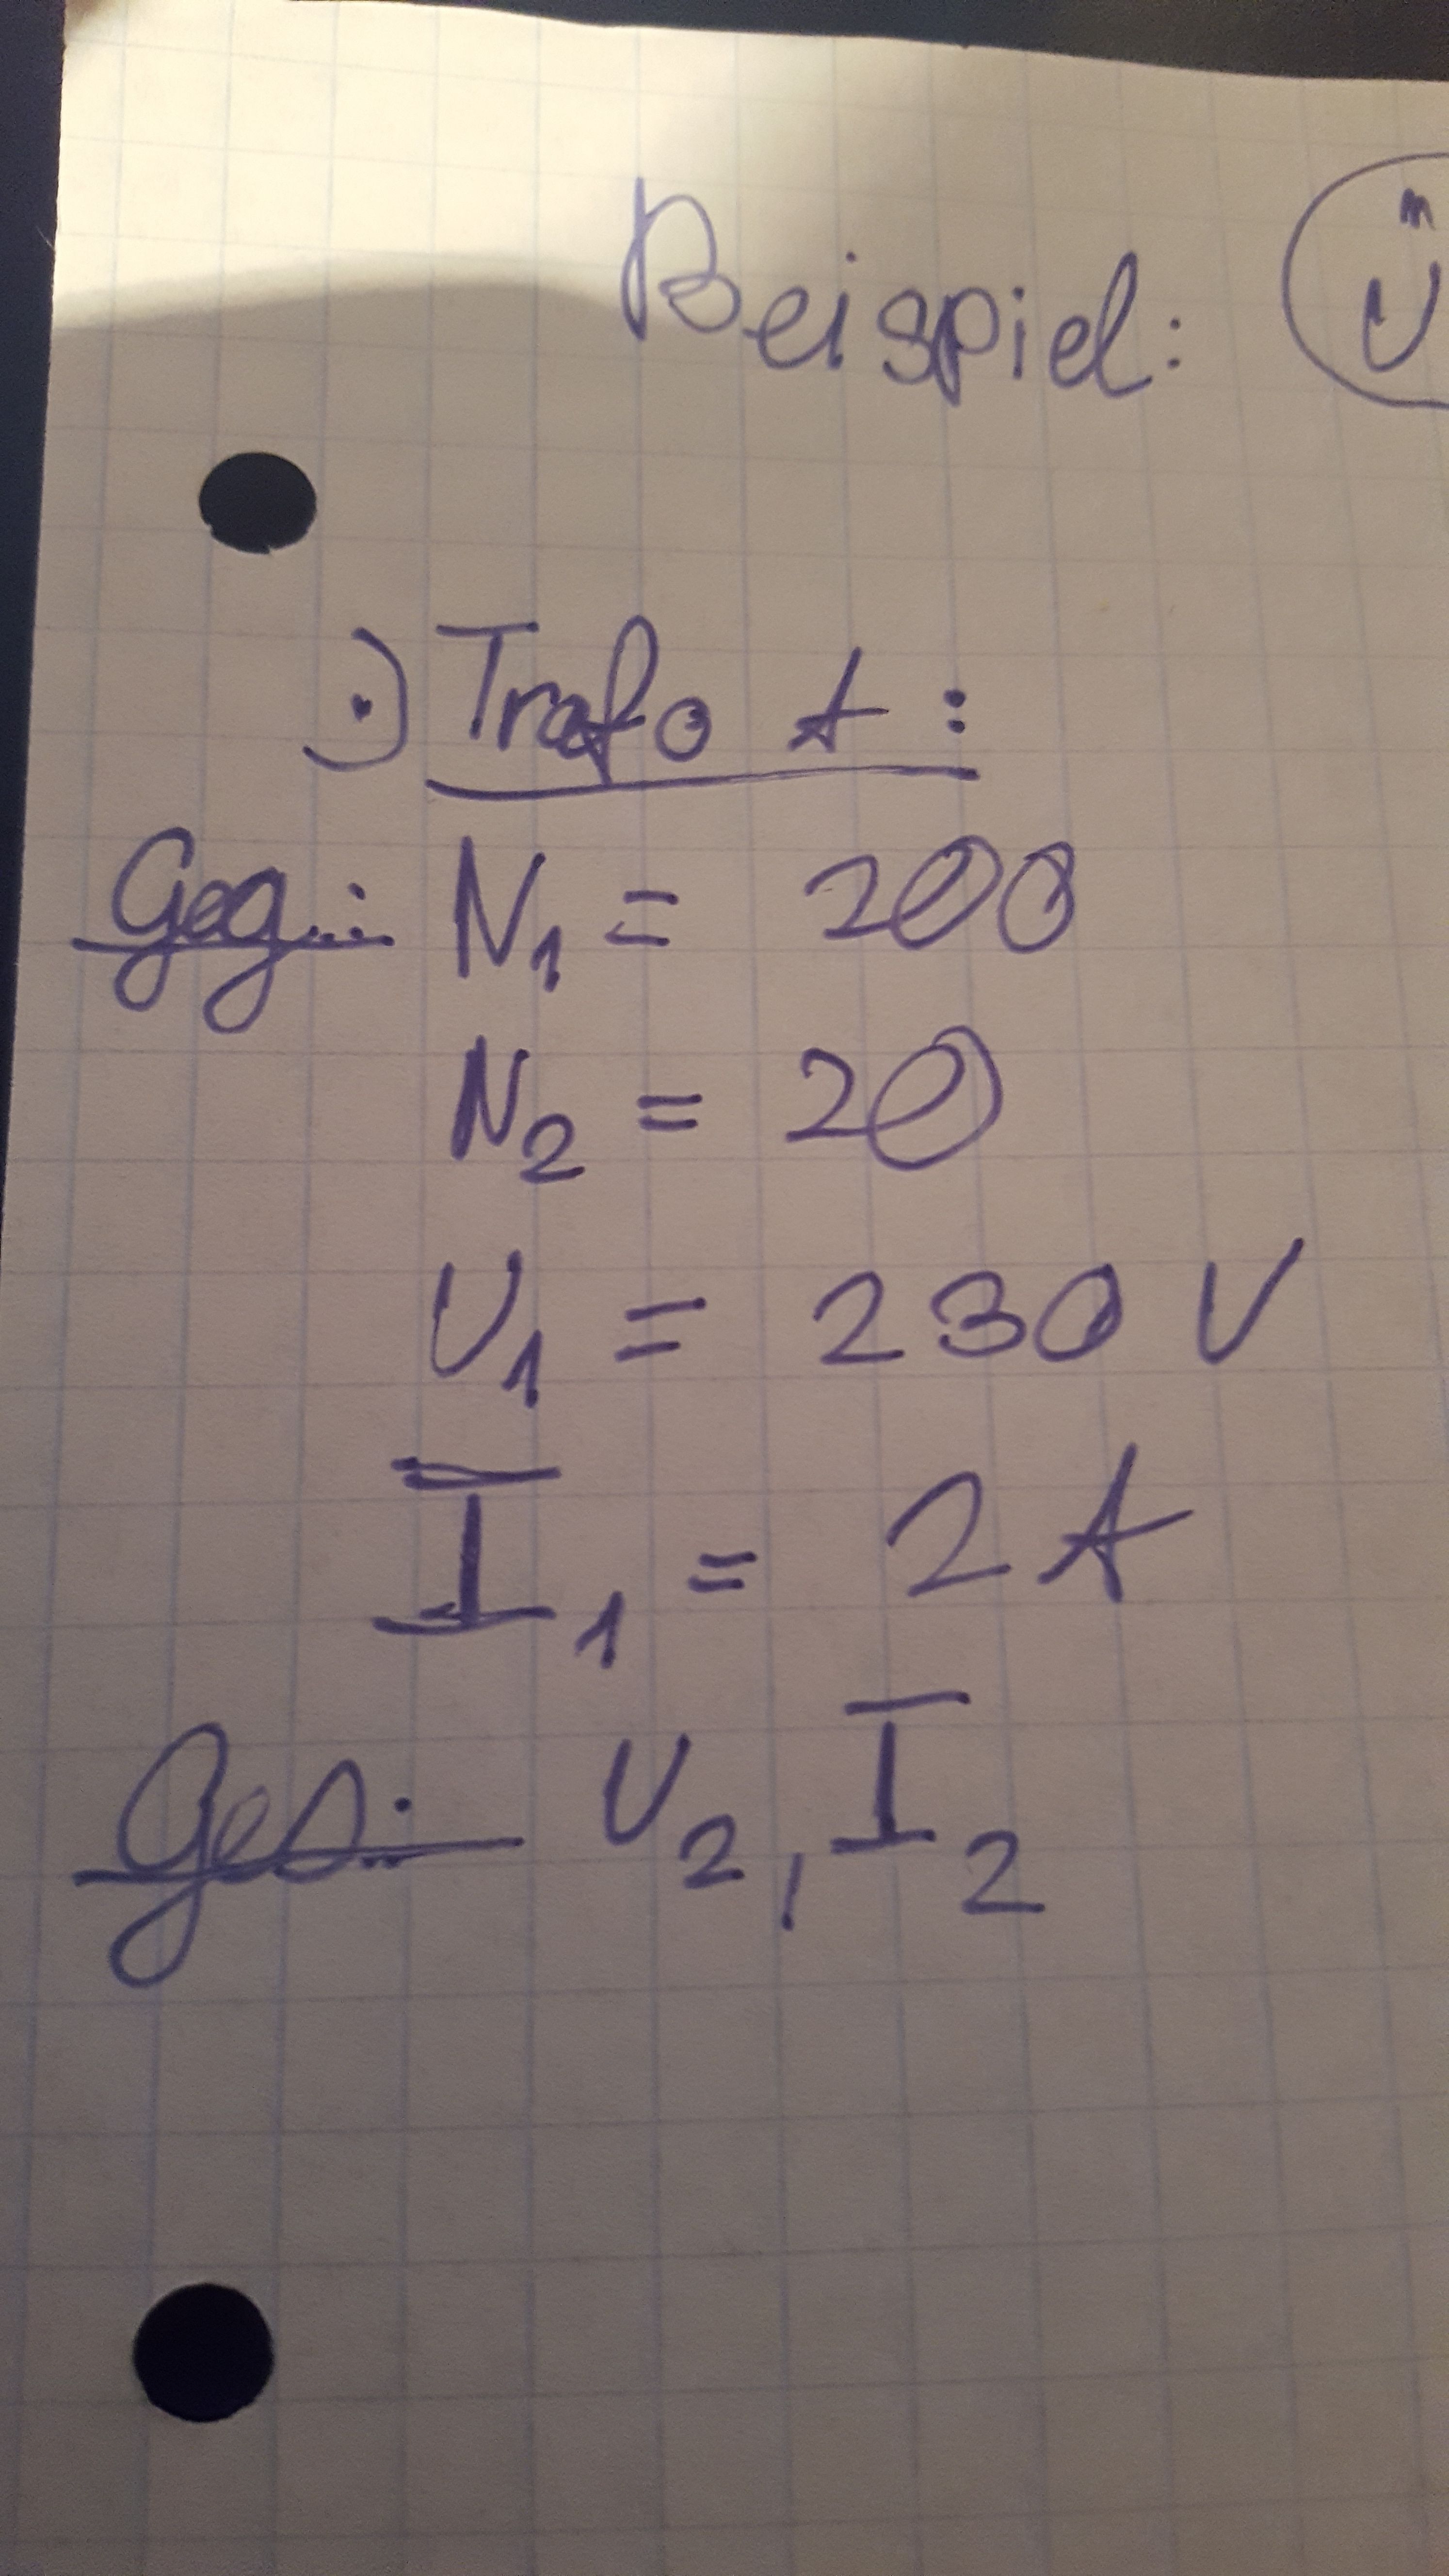 Beispiel: Ü
·) Trafo A:
Geg.: N₁ = 200
N₂ = 20
U₁ = 230 V
I₁ = 2 A
Ges.: U₂, I₂